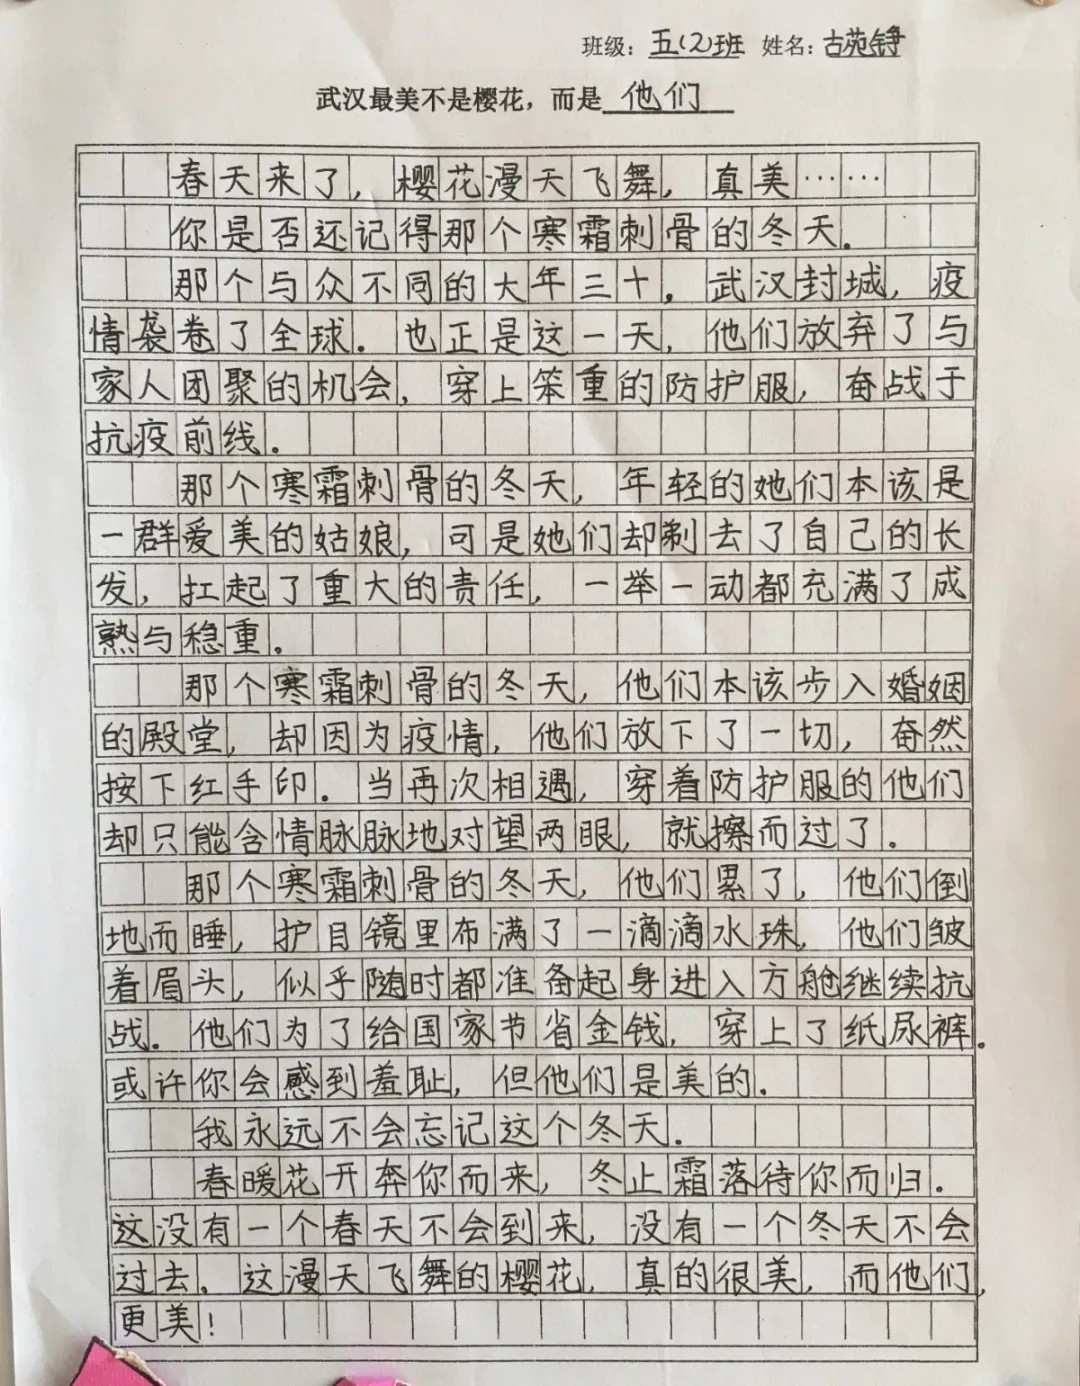 班级：五(2)班 姓名：古苑铮
武汉最美不是樱花，而是他们
春天来了，樱花漫天飞舞，真美……
你是否还记得那个寒霜刺骨的冬天。
那个与众不同的大年三十。武汉封城，疫
情袭卷了全球．也正是这一天，他们放弃了与
家人团聚的机会，穿上笨重的防护服，奋战于
抗疫前线。
那个寒霜刺骨的冬天，年轻的她们本该是
一群爱美的姑娘，可是她们却剃去了自己的长
发，扛起了重大的责任，一举一动都充满了成
熟与稳重。
那个寒霜刺骨的冬天，他们本该步入婚姻
的殿堂，却因为疫情，他们放下了一切，奋然
按下红手印．当再次相遇，穿着防护服的他们
却只能含情脉脉地对望两眼，就擦而过了。
那个寒霜刺骨的冬天，他们累了，他们倒
地而睡，护目镜里布满了一滴滴水珠，他们皱
着眉头，似乎随时都准备起身进入方舱继续抗
战．他们为了给国家节省金钱，穿上了纸尿裤。
或许你会感到羞耻，但他们是美的．
我永远不会忘记这个冬天．
春暖花开奔你而来，冬止霜落待你而归．
这没有一个春天不会到来，没有一个冬天不会
过去．这漫天飞舞的樱花，真的很美，而他们，
更美！